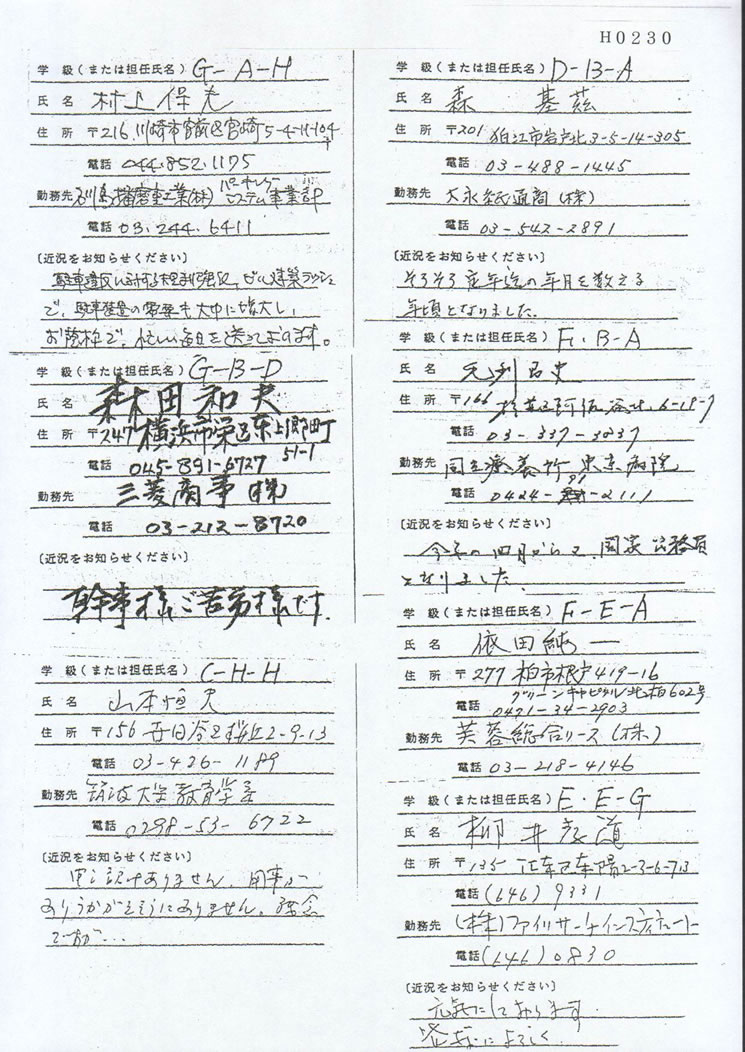 H0230
学級(または担任氏名) G-A-H
氏名 村上保夫
住所 〒216 川崎市宮前区宮崎5-4-11-104
電話 044.852.1175
勤務先 石川島播磨重工業(株) パーキングシステム事業部
電話 03.244.6411
〔近況をお知らせください〕
駐車違反に対する規制強化、ビル建築ラッシュ
で、駐車装置の需要も大巾に増大し、
お蔭様で、忙しい毎日を送っております。
学級(または担任氏名) G-B-D
氏名 森田和夫
住所 〒247 横浜市栄区東上郷町
51-1
電話 045-891-6727
勤務先 三菱商事(株)
電話 03-212-8720
〔近況をお知らせください〕
幹事様、ご苦労様です.
学級(または担任氏名) C-H-H
氏名 山本恒夫
住所 〒156 世田谷区桜丘2-9-13
電話 03-426-1189
勤務先 筑波大学教育学系
電話 0298-53-6722
〔近況をお知らせください〕
申し訳ありません、用事が
ありうかがえそうにありません。残念
ですが…
学級(または担任氏名) D-B-A
氏名 森 基茲
住所 〒201 狛江市岩戸北3-5-14-305
電話 03-488-1445
勤務先 大永紙通商(株)
電話 03-542-2891
〔近況をお知らせください〕
そろそろ定年迄の年月を数える
年頃となりました.
学級(または担任氏名) F.B-A
氏名
住所 〒166 杉並区阿佐谷北6-18-7
電話 03-337-3837
勤務先 国立療養所 東京病院
電話 0424-91-2111
〔近況をお知らせください〕
今年の四月から又、国家公務員
となりました.
学級(または担任氏名) F-E-A
氏名 依田純一
住所 〒277 柏市根戸419-16
グリーンキャピタル北柏602号
電話 0471-34-2903
勤務先 芙蓉総合リース(株)
電話 03-218-4146
学級(または担任氏名) E.E-G
氏名 柳井 道
住所 〒135 江東区東陽2-3-6-713
電話 (646) 9331
勤務先 (株)ファイリサーチインスティテュート
電話 (646) 0830
〔近況をお知らせください〕
元気にしております.
皆様によろしく